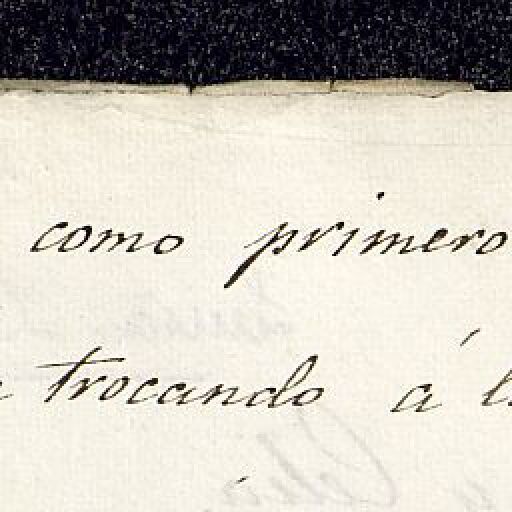 como primero
trocando á